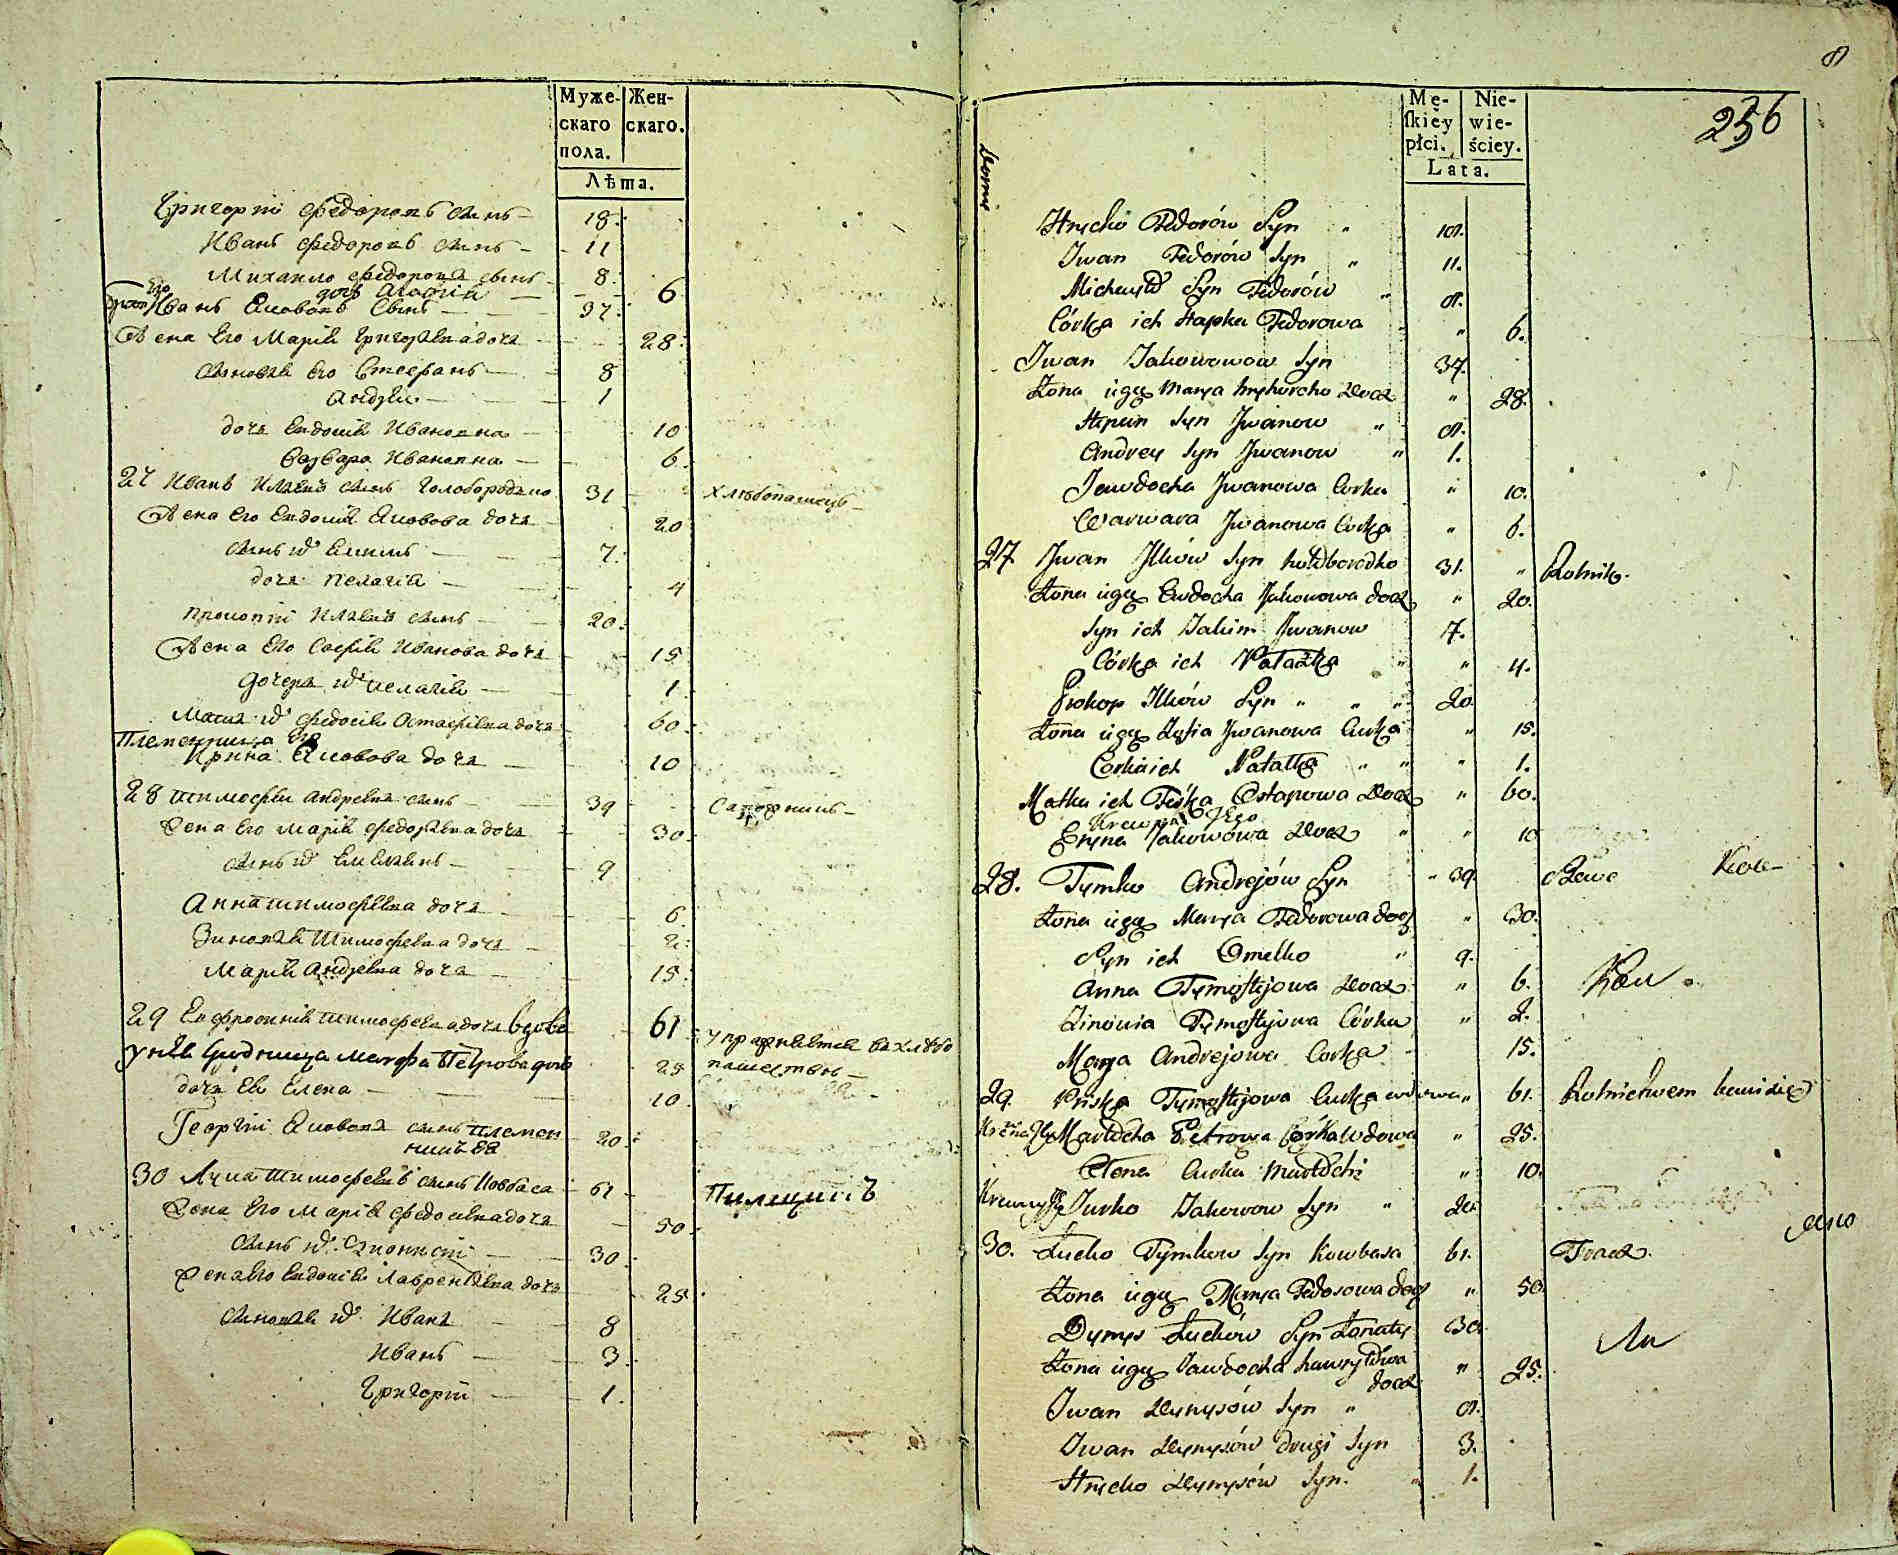 Муже-
скаго
пола.
Жен-
скаго.
Лѣта.
Григорій Федоровъ сынъ 18
Иванъ Федоровъ сынъ 11
Михаило Федоровъ сынъ 8
дочь Агафія 6
Его братъ Иванъ Яковлевъ Сынъ 37
Жена Его Марія Григорьевна дочь 28
Сыновья Его Стефанъ 8
Андрей 1
дочь Евдокія Ивановна 10
Варвара Ивановна 6
27 Иванъ Ильинъ сынъ Голобородько 31 Хлѣбопашецъ
Жена Его Евдокія Яковова дочь 20
Сынъ их Екимъ 7
дочь Пелагія 4
Прокопій Ильинъ сынъ 20
Жена Его Софія Иванова дочь 15
Дочерь их Пелагія 1
Мать их Федосія Остафіевна дочь 60
Племенница Его
Ирина Яковова дочь 10
28 Тимофей Андреевъ сынъ 39 Сапожникъ
Жена Его Марія Федоровна дочь 30
Сынъ их Емелянъ 9
Анна Тимофеевна дочь 6
Зиновія Тимофеевна дочь 2
Марія Андреевна дочь 15
29 Евфросинія Тимофеевна дочь вдова 61 упражняется в хлѣбо
У нея Марфа Петрова дочь 25 пашествѣ
дочь Ея Елена 10
Георгій Яковлевъ сынъ племен
никъ Ея 20
30 Лука Тимофеевъ сынъ Ковбаса 61
Жена Его Марія Федосіевна дочь 50
Сынъ их Діонисій 30
Жена Его Евдокія Лаврентьевна дочь 25
Сыновья их Иванъ 8
Иванъ 3
Григорій 1
8
236
Domy
Mę-
ſkiéy
płci.
Nie-
wie-
ściey.
Lata.
Hryćko Fedorów Syn " 18.
Iwan Fedorów Syn " 11.
Michayło Syn Fedorów " 8.
Córka ich Hapka Fedorowa " 6.
Iwan Jakowowow Syn 37.
Żona iego Marya Hryhorcho Docz " 28.
Stepan Syn Iwanow " 8.
Andrey Syn Iwanow " 1.
Jewdocha Iwanowa Corka " 10.
Warwara Iwanowa Corka " 6.
27 Iwan Ilków Syn Hołoborodko 31. " Rolnik.
Żona iego Ewdocha Jakowowa docz " 20.
Syn ich Jakim Iwanow 7.
Córka ich Pałażka " " 4.
Prokop Ilków Syn " " " 20
Żona iego Zofia Iwanowa Curka " 15.
Corka ich Pałażka " " " 1.
Matka ich Feśka Ostapowa Docz " 60.
Krewna Jego
Eryna Jakowowa Docz " " 10
28. Tymko Andrejów Syn " 39. Szewc
Żona iego Marya Fedorowa docz " 30.
Syn ich Omelko " 9.
Anna Tymofiyowa Docz " 6.
Zinowia Tymofiyowa Córka " 2.
Marya Andrejowa Corka 15.
29. Pryśka Tymofiyowa Curka wdowa " 61. Rolnictwem bawi się
Marfocha Petrowa Córka wdowa " 25.
Olena Curka Marfochi " 10.
Krewny Jey Jurko Jakowow Syn " 20.
30. Łucko Tymkow Syn Kowbasa 61. Tracz.
Żona iego Marya Fedosowa docz " 50.
Dynys Łucków Syn Żonaty 30
Żona iego Jawdocha Hawryłowa
docz " 25.
Iwan Dynysów Syn " 8.
Iwan Dynysów drugi Syn 3.
Hryćko Dynysów Syn. " 1.